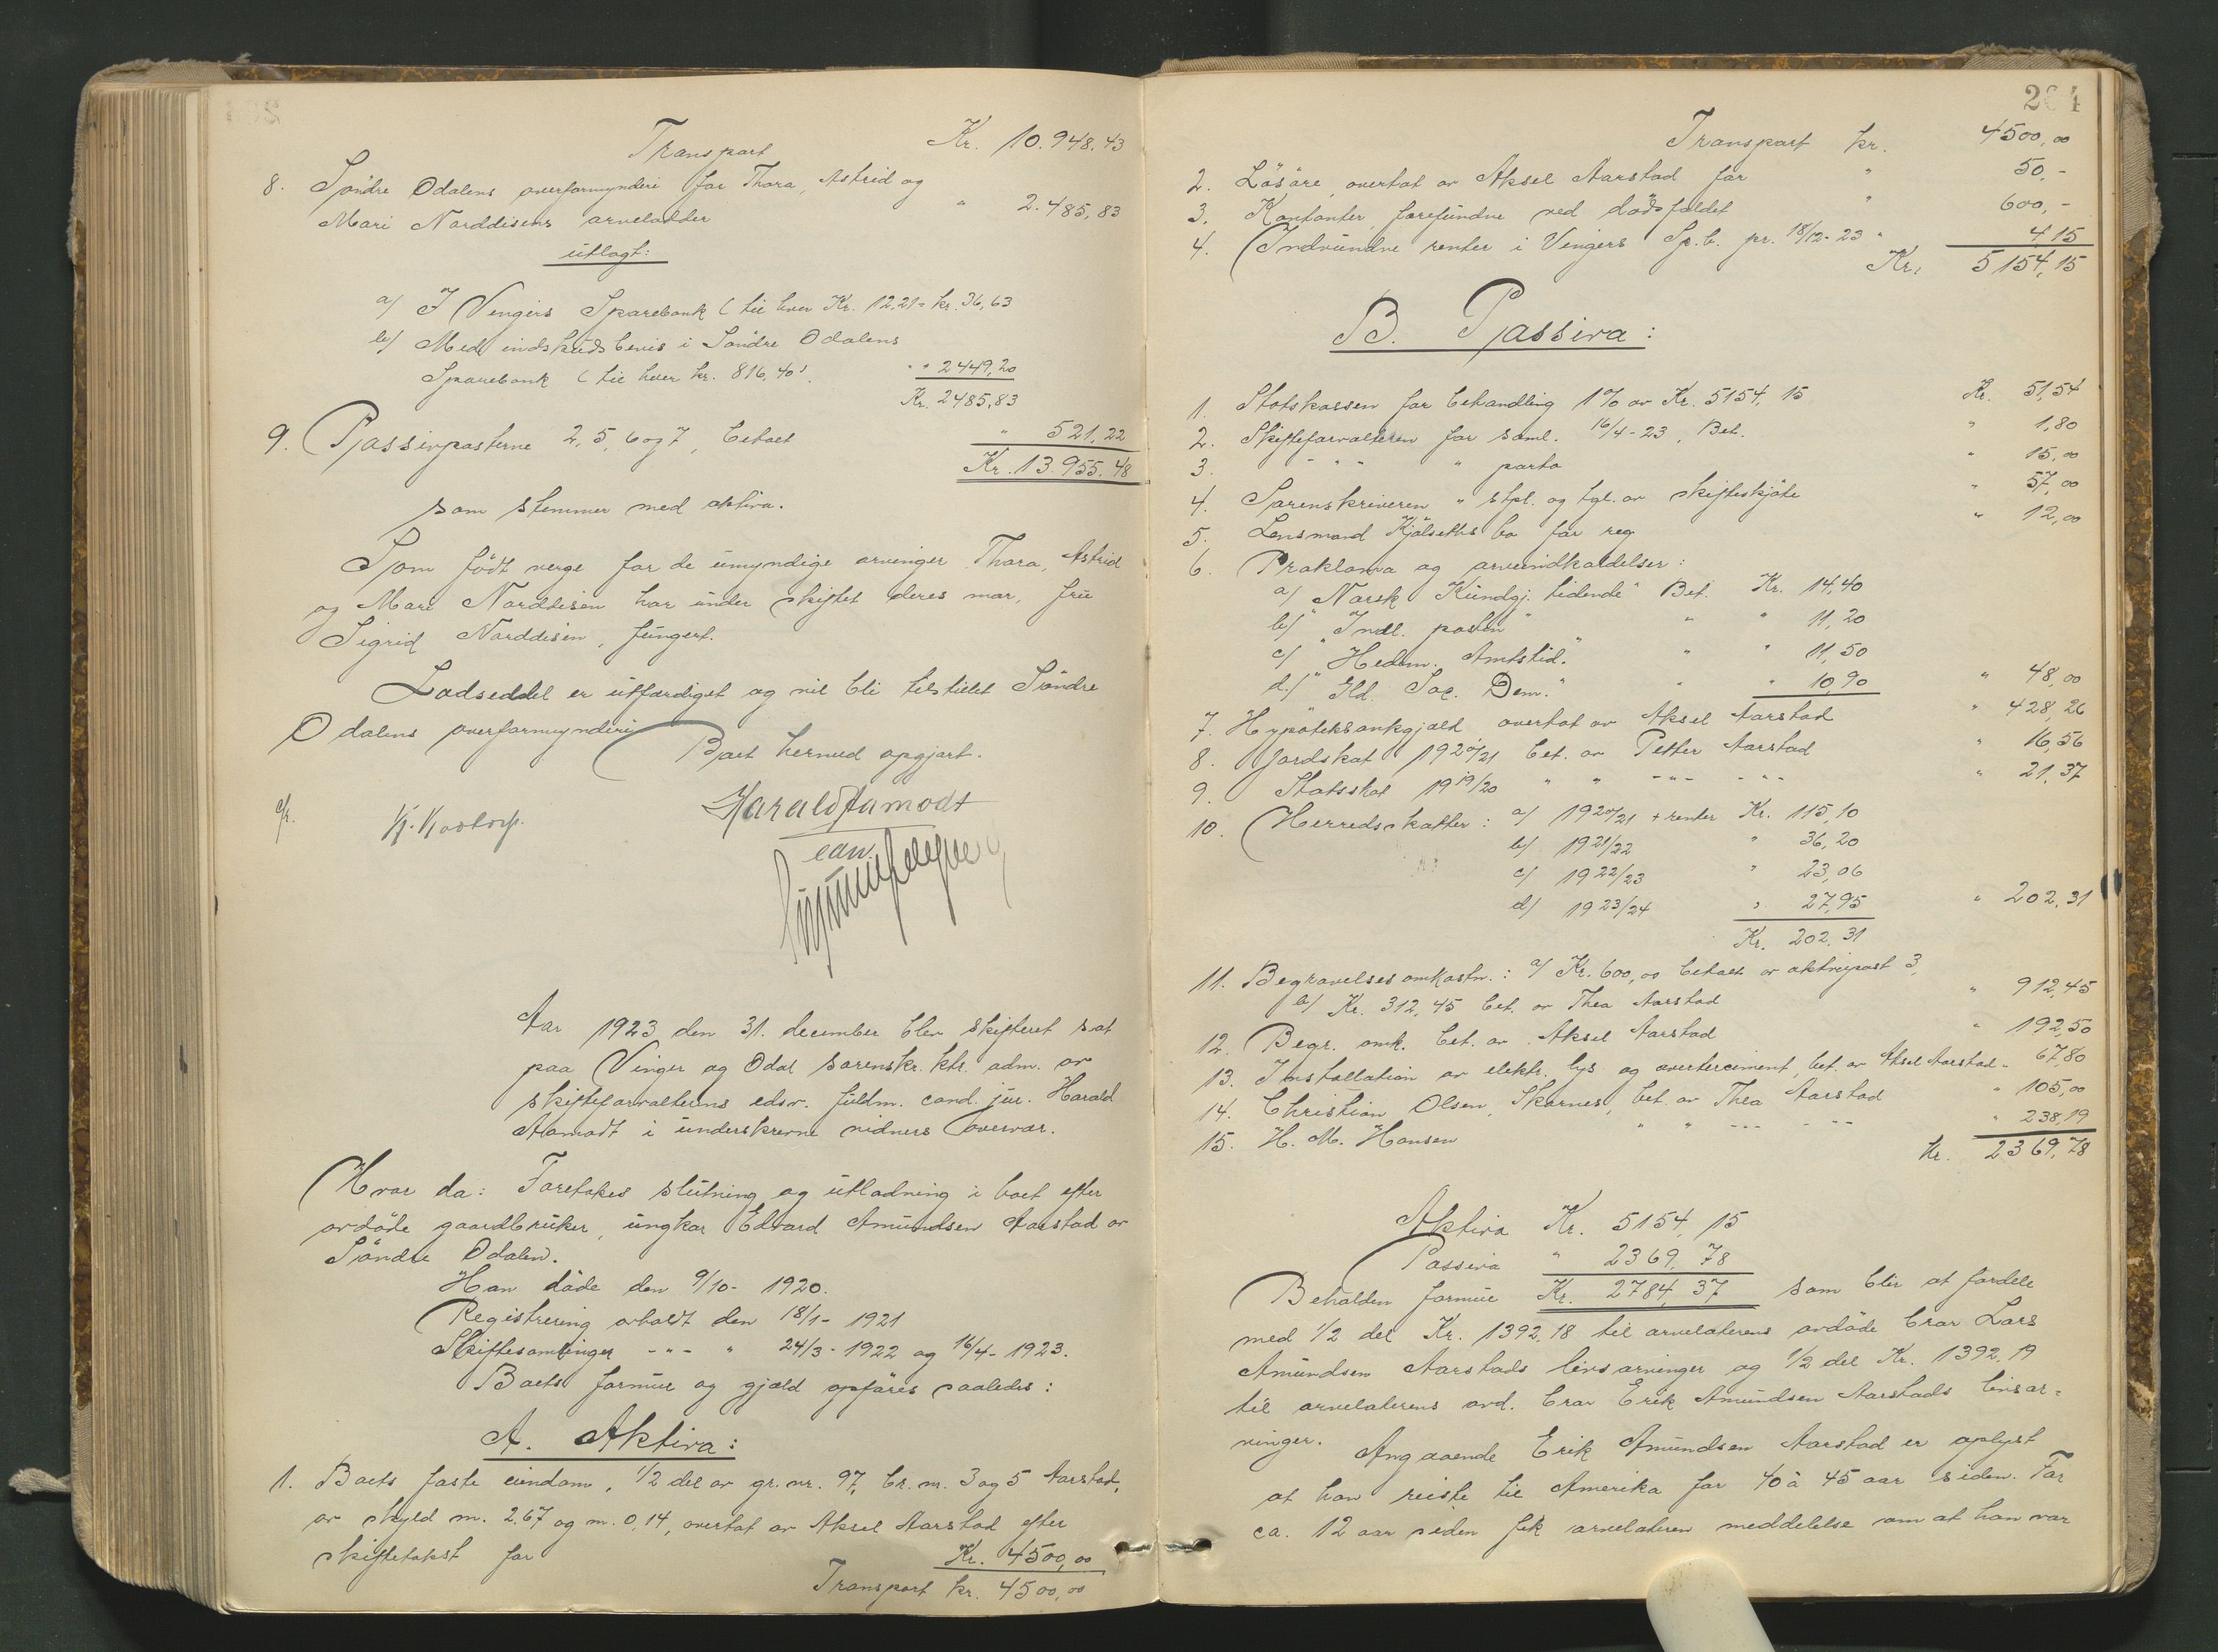 Transport Kr. 10.948.43
8. Söndre Odalens overformynderi for Thora, Astrid og
Mari Norddisens arvelodder " 2.485,83
utlagt:
a/ I Vingers Sparebank (til hver Kr. 12.21 = kr. 36,63
b/ Med indskudsbevis i Söndre Odalens
Sparebank (til hver kr. 816,40). " " 2449,20
Kr. 2485,83
9. Passivposterne 2, 5, 6 og 7, betalt " 521,22
Kr. 13.955.48
som stemmer med aktiva.
Som födt verge for de umyndige arvinger Thora, Astrid
og Mari Norddisen har under skiftet deres mor, fru
Sigrid Norddisen, fungert.
Lodseddel er utfærdiget og vil bli tilstillet Söndre
Odalens overformynderi
Boet hermed opgjort.
Harald Aamodt
edsv.
Aar 1923 den 31. december blev skifteret sat
paa Vinger og Odal sorenskr. ktr. adm. av
skifteforvalterens edsv. fuldm. cand. jur. Harald
Aamodt i underskrevne vidners overvær.
Hvor da: Foretokes slutning og utlodning i boet efter
avdöde gaardbruker, ungkar Edvard Amundsen Aarstad av
Söndre Odalen.
Han döde den 9/10- 1920.
Registrering avholdt den 18/1- 1921
Skiftesamlinger -"- " 24/3- 1922 og 16/4- 1923.
Boets formue og gjæld opföres saaledes:
A. Aktiva:
1. Boets faste eiendom, 1/2 del av gr. nr. 97, br. nr. 3 og 5 Aarstad,
av skyld m. 2.67 og m. 0,14, overtat av Aksel Aarstad efter
skiftetakst for Kr. 4500,00
Transport kr. 4500,00
264
Transport kr. 4500,00
2. Lösöre overtat av Aksel Aarstad for " 50,-
3. Kontanter, forefundne ved dödsfaldet " 600,-
4. Indvundne renter i Vingers Sp.b. pr. 18/12-23 " 4 15
Kr. 5154,15
B. Passiva:
1. Statskassen for behandling 1% av Kr. 5154,15 Kr. 51,54
2. Skifteforvalteren for saml. 16/4-23, Bet. " 1,80
3. - " - " porto " 15,00
4. Sorenskriveren " stpl. og tgl. av skifteskjöte " 57,00
5. Lensmand Kjölseths bo for reg. " 12,00
6. Proklama og arveindkaldelser:
a/ "Norsk Kundgj. tidende" Bet. Kr. 14,40
b/ "Indl. posten" " " 11,20
c/ "Hedm. Amtstid." " " 11,50
d/ "Gld. Soc. Dem." " " 10,90 " 48,00
7. Hypotekbankgjæld overtat av Aksel Aarstad " 428,26
8. Jordskat 1920/21 bet. av Petter Aarstad " 16,56
9. Statsskat 1919/20 " " -"- -"- " 21,37
10. Herredsskatter: a/ 1920/21 + renter Kr. 115,10
b/ 1921/22 " 36,20
c/ 1922/23 " 23,06
d/ 1923/24 " 27,95 " 202,31
Kr. 202,31
11. Begravelsesomkostn.: a/ Kr. 600,00 betalt av aktivpost 3,
b/ Kr. 312,45 bet. av Thea Aarstad " 912,45
12. Begr. omk. bet. av Aksel Aarstad " 192,50
13. Installation av elektr. lys og avertissement, bet. av Aksel Aarstad " 67,80
14. Christian Olsen, Skarnes, bet. av Thea Aarstad " 105,00
15. H. M. Hansen " " -"- -"- " 238,19
Kr. 2369,78
Aktiva Kr. 5154,15
Passiva " 2369,78
Beholden formue Kr. 2784,37 som blir at fordele
med 1/2 del Kr. 1392,18 til arvelaterens avdöde bror Lars
Amundsen Aarstads livsarvinger og 1/2 del Kr. 1392,19
til arvelaterens avd. bror Erik Amundsen Aarstads livsar=
vinger.
Angaaende Erik Amundsen Aarstad er oplyst
at han reiste til Amerika for 40 à 45 aar siden. For
ca. 12 aar siden fik arvelateren meddelelse om at han var